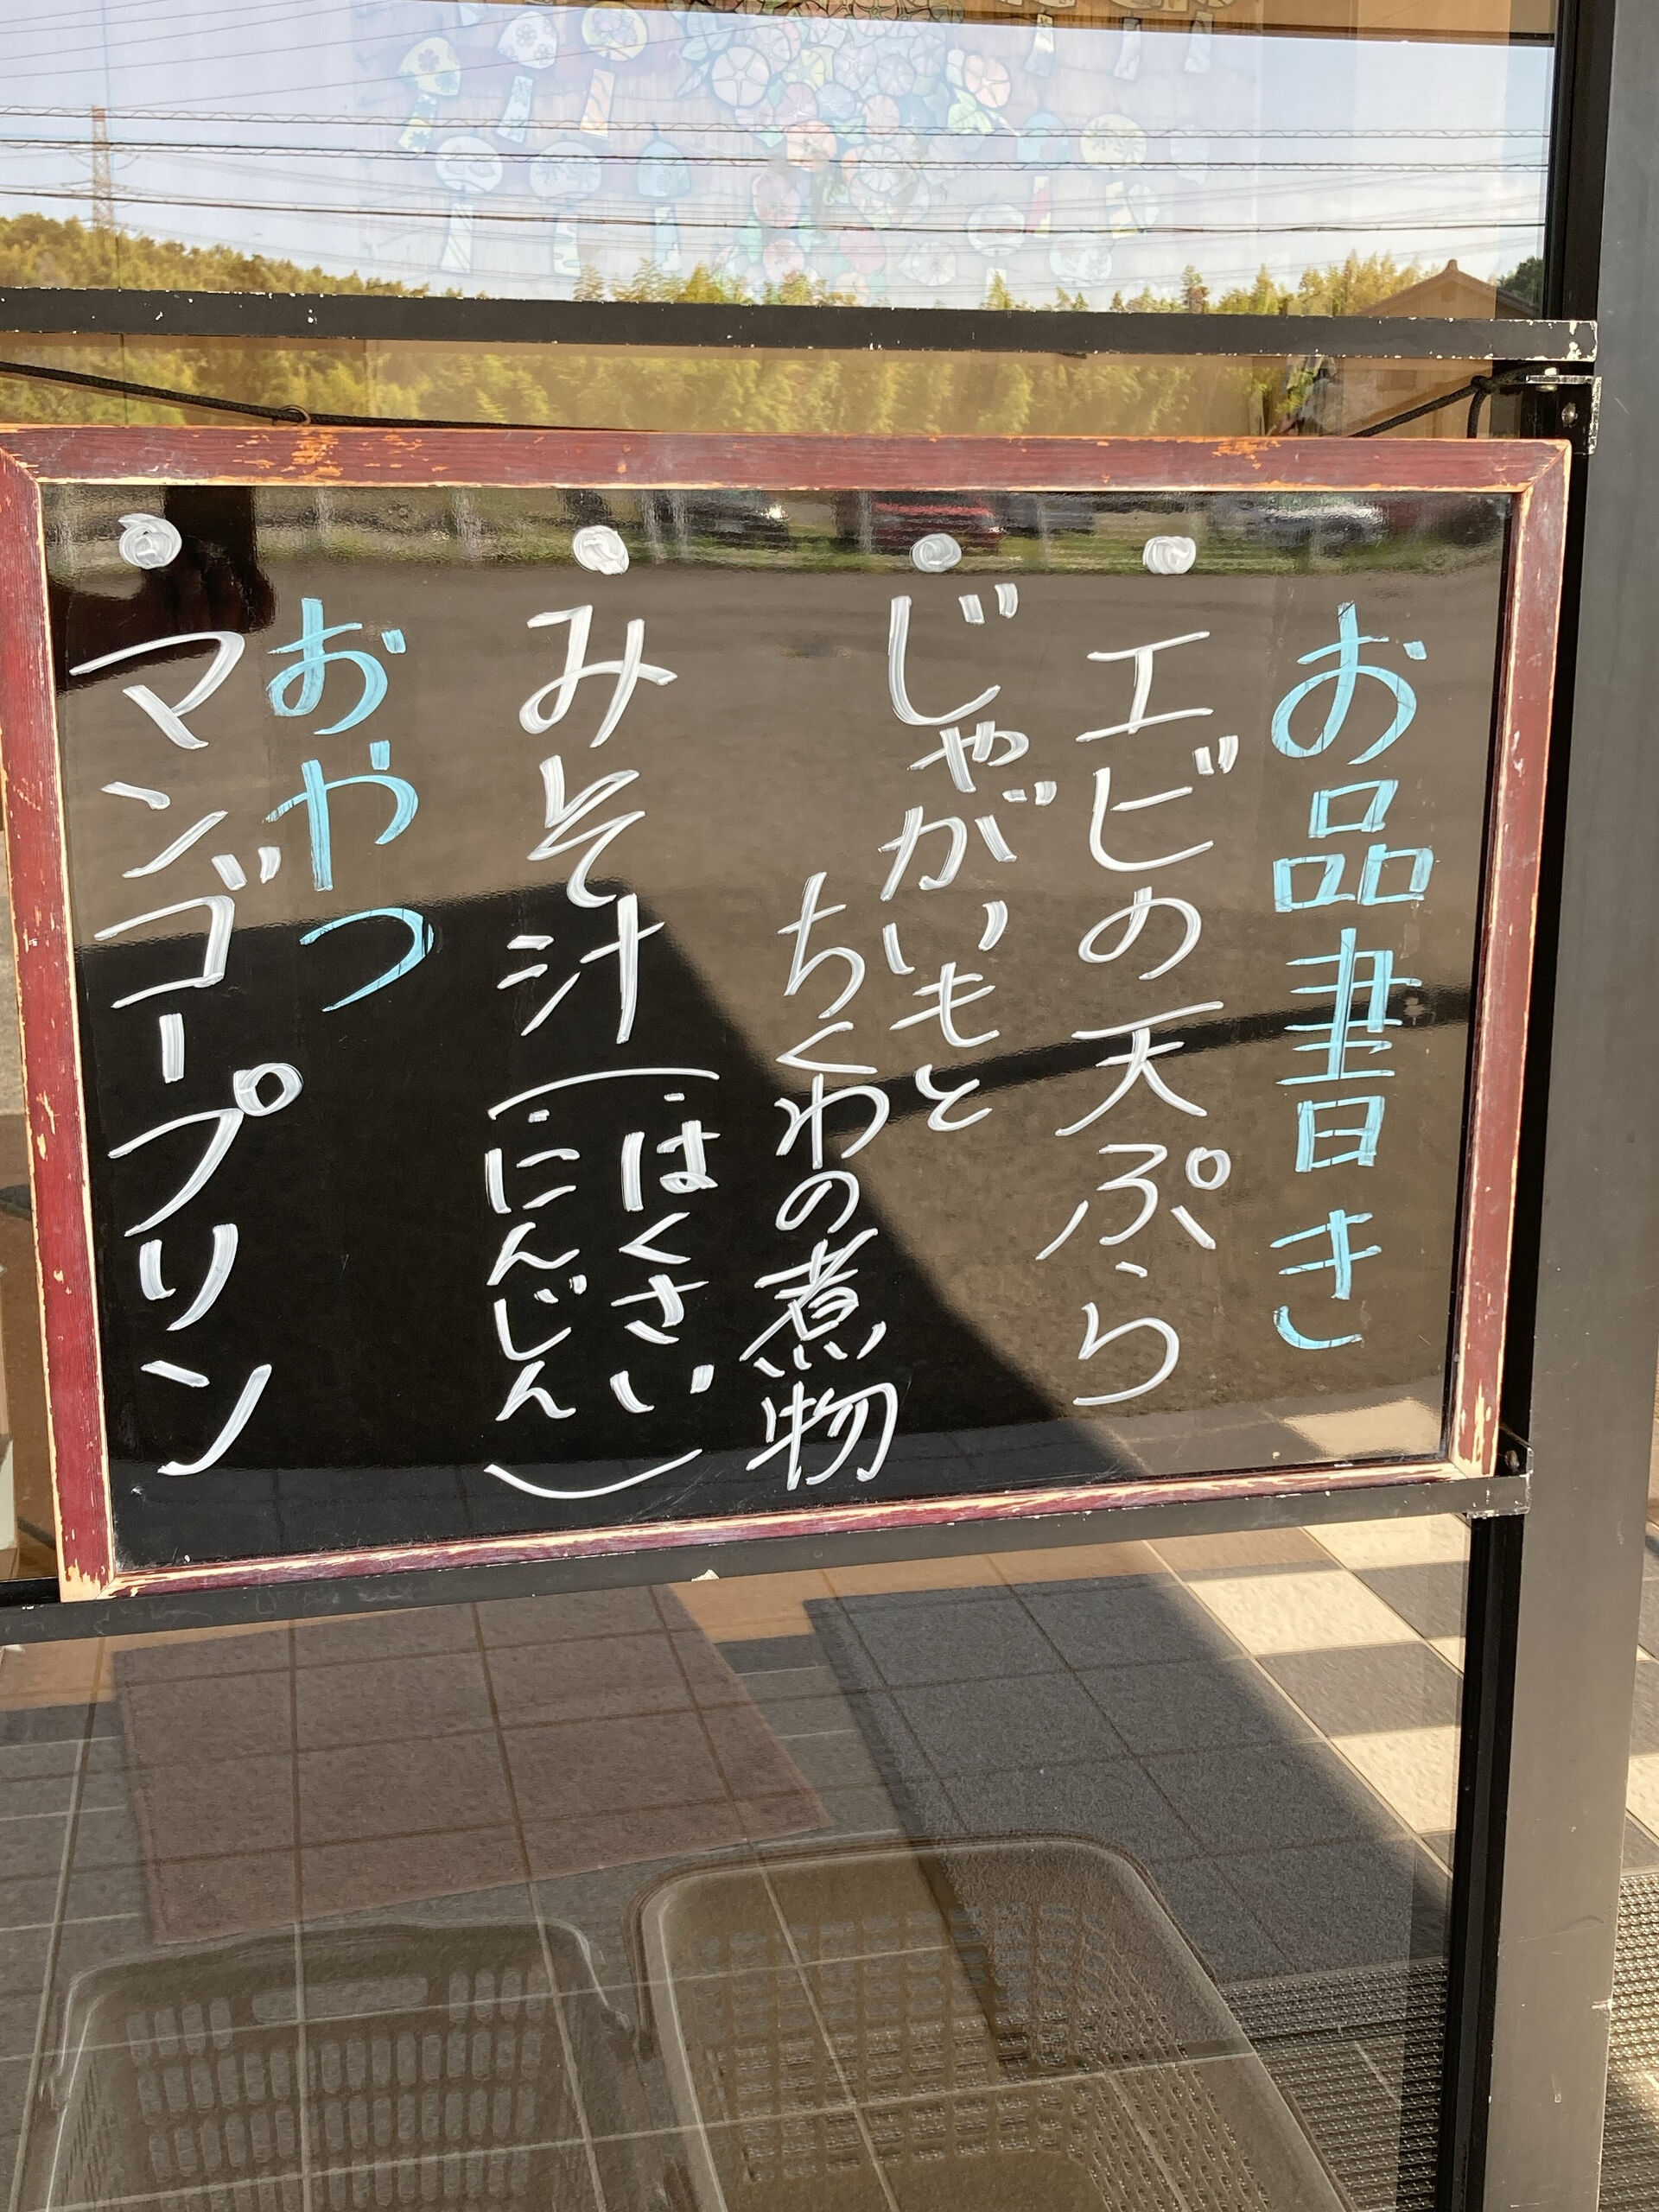 お品書き
●エビの天ぷら
●じゃがいもと
ちくわの煮物
●みそ汁(・はくさい
・にんじん)
おやつ
●マンゴープリン